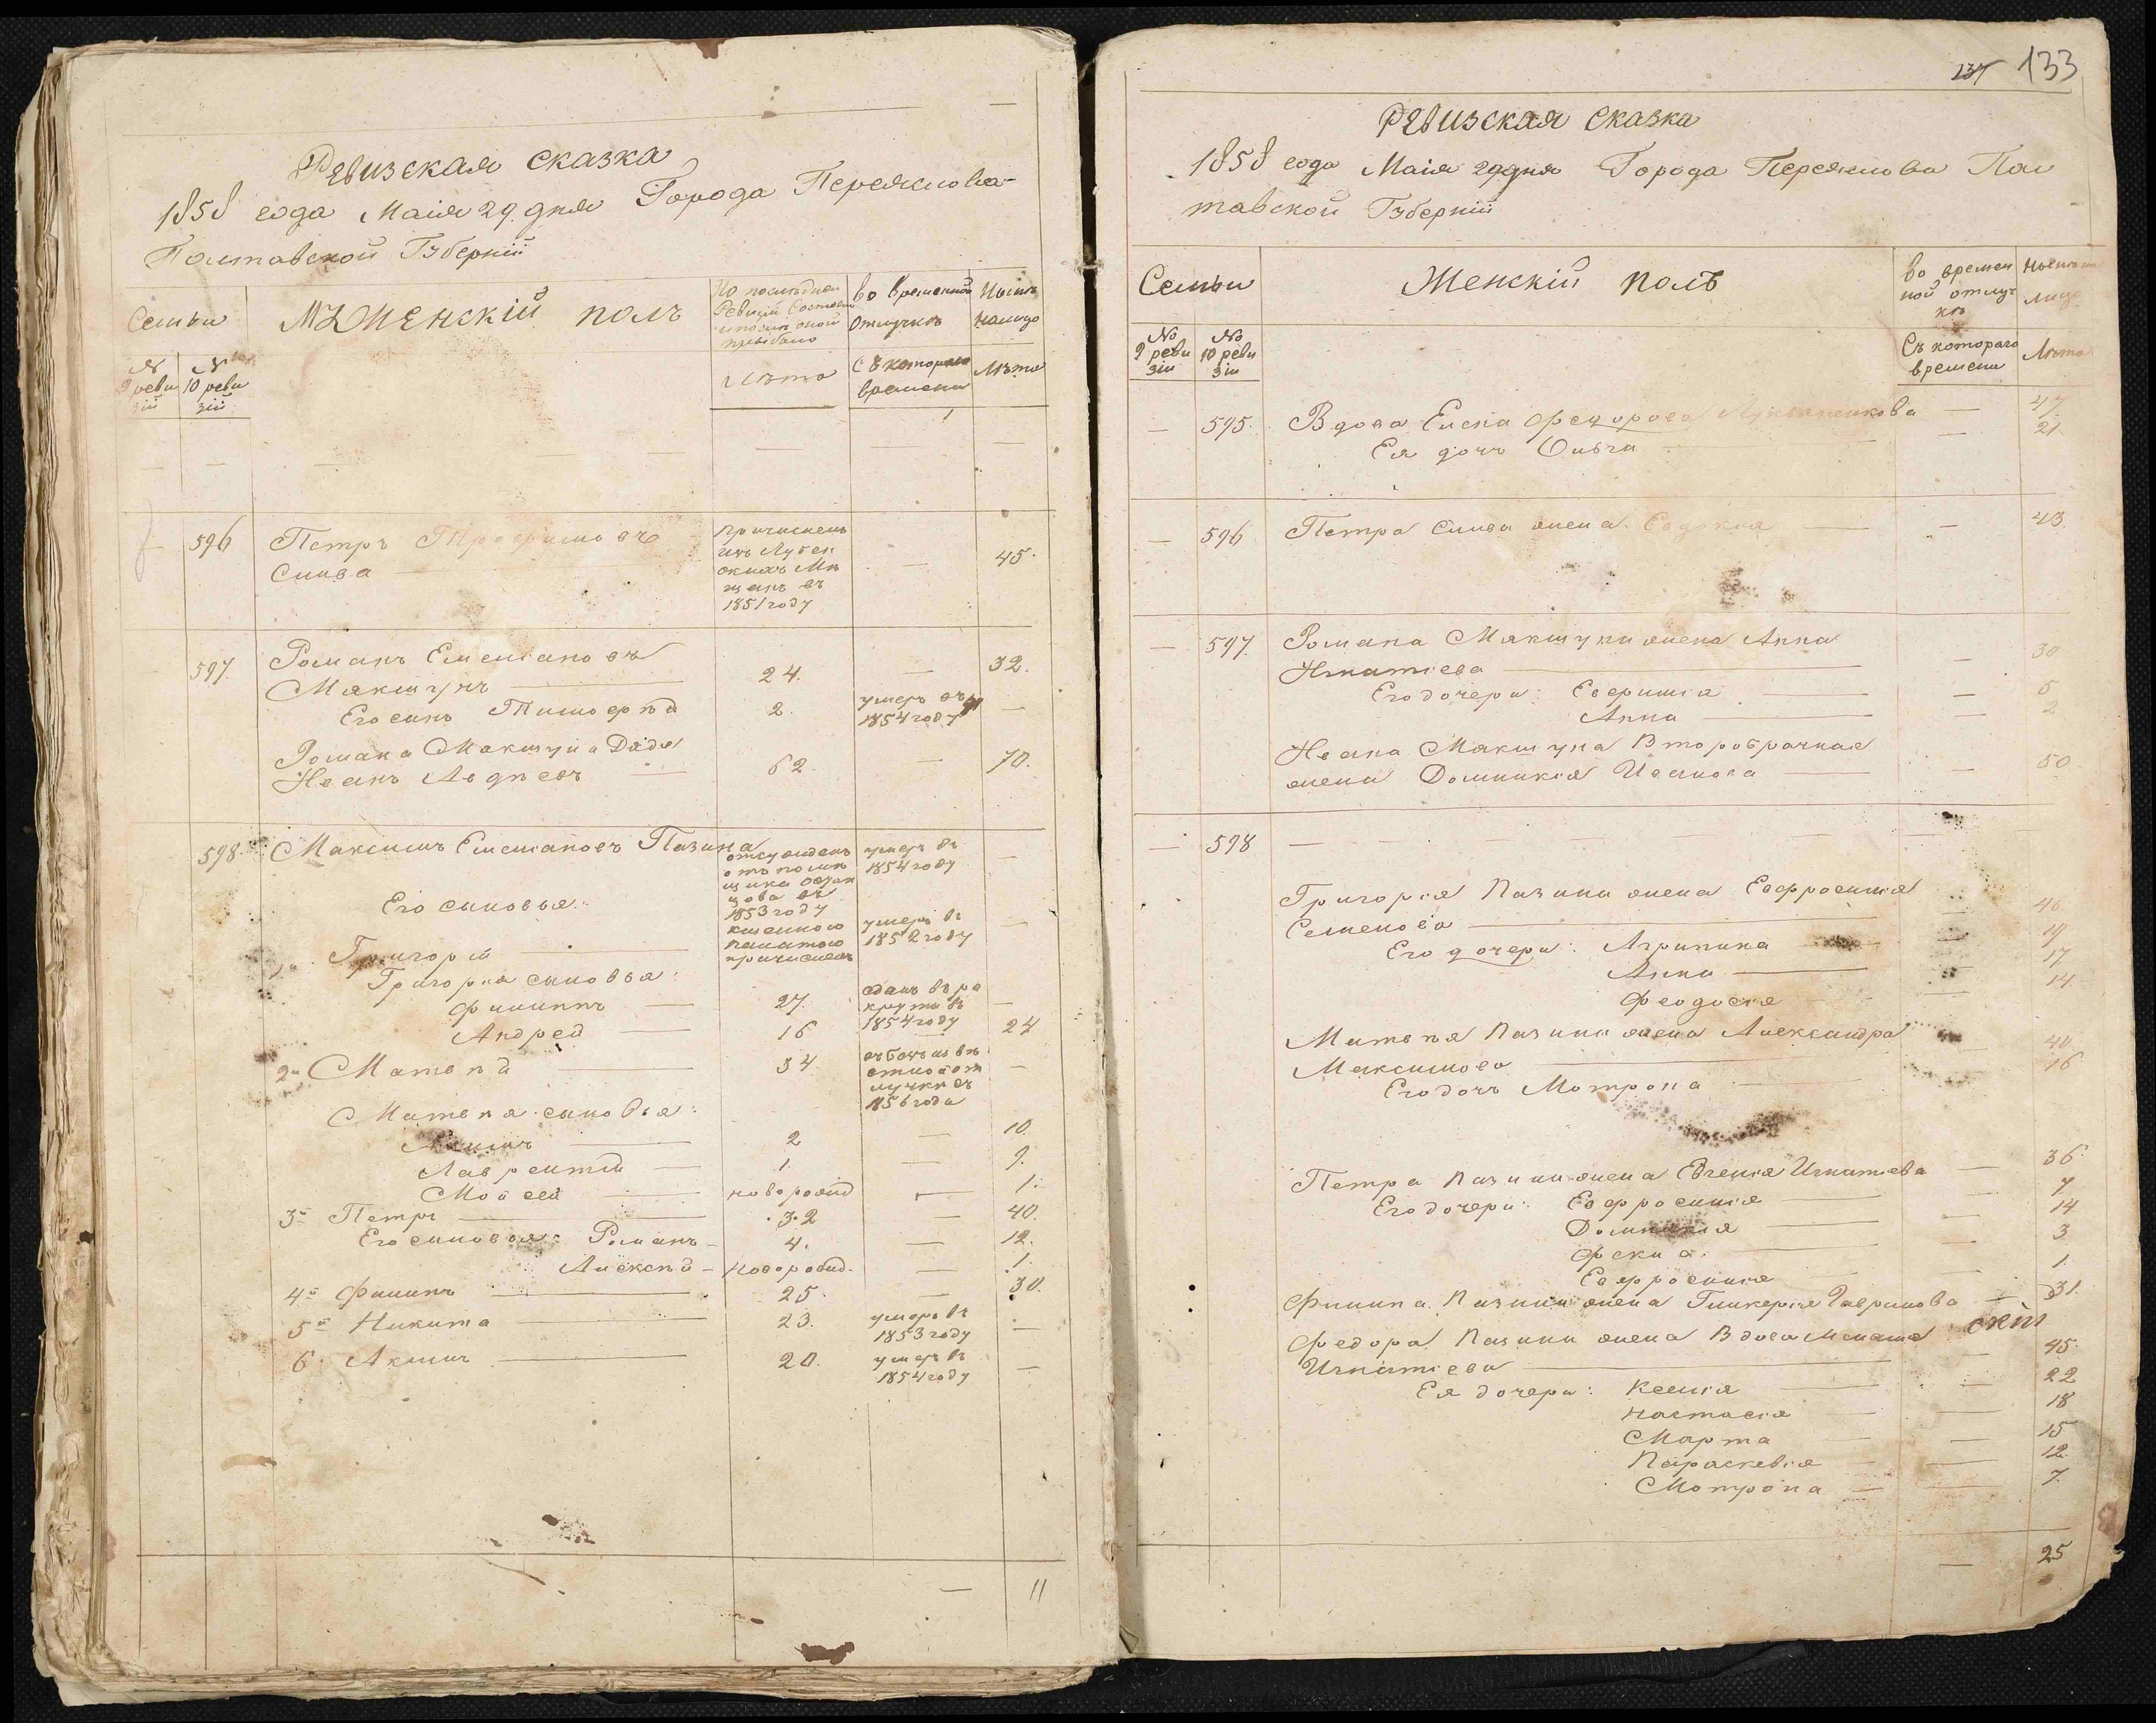 Ревизская сказка
1858 года Маія 29 дня Города Переяслова
Полтавской Губерніи
Семьи
Мужескій полъ
По послѣдней Ревизіи Состояло и послѣ оной прибыло
во временной отлучкѣ
Нынѣ налицо
№ 9 ревизій
№ 10 ревизій
Лѣта
Съ котораго времени
Лѣта
596 Петръ Трофимовъ Слива
причисленъ изъ Лубенскихъ Мѣщанъ въ 1851 году — 45.
597. Романъ Емельяновъ
Макшунъ — 24. — 32.
Его сынъ Тимофѣй 2. умеръ въ 1854 году —
Романа Макшуна Дядя
Иванъ Авдѣевъ — 62. — 70.
598. Максимъ Емельяновъ Пазина
отсужденъ отъ помѣщика въ 1853 году
умеръ въ 1854 году —
Его сыновья:
1й Григорій — причисленъ
умеръ въ 1852 году —
Григорія сыновья:
Филиппъ — 27. сданъ въ рекруты въ 1854 году —
Андрей — 16 — 24
2й Матвѣй — 34. 1856 года —
Матвѣя сыновья:
— 2 — 10.
Лаврентій — 1. — 9.
Мойсей — новорожд — 1.
3й Петръ — 32 — 40.
Его сыновья: Романъ — 4. — 12.
Алексѣй — новорожд. — 1.
4й Филипъ — 25. — 30.
5й Никита — 23. умеръ въ 1853 году —
6. Акимъ — 20. умеръ въ 1854 году —
— 11
137 133
Ревизская сказка
1858 года Маія 29 дня Города Переяслова Пол
тавской Губерніи
Семьи
Женскій полъ
во времен
ной отлуч
кѣ
Нынѣ на
лицо
№ 9 реви
зіи
№ 10 реви
зіи
Съ котораго
времени
Лѣта
— 595. Вдова Елена Федорова Лукьяненкова — 47.
Ея дочь Ольга — 21.
— 596 Петра Сливы жена Евдокія — 43.
— 597. Романа Макшуна жена Анна
Игнатіева — 30
Его дочери: Евфимія — 5
Анна — 2
Ивана Макшуна Второбрачная
жена Домникія Иванова — 50.
— 598 —
Григорія Пазины жена Евфросинія
Семенова — 46.
Его дочери: Агрипина — 19
Анна — 17
Феодосія — 14.
Матвѣя Пазины жена Александра
Максимова — 40.
Его дочь Мотрона — 16
Петра Пазины жена Евгенія Игнатіева — 36.
Его дочери: Евфросинія — 7
Домникія — 14
Фекла. — 3
Евфросинія — 1.
Филипа Пазины жена Гликерія Гаврилова — 31.
Федора Пазины жена Вдова
Игнатіева — 45.
Ея дочери: Ксенія — 22
Настасія — 18
Марта — 15
Параскевія — 12.
Мотрона — 7.
— 25